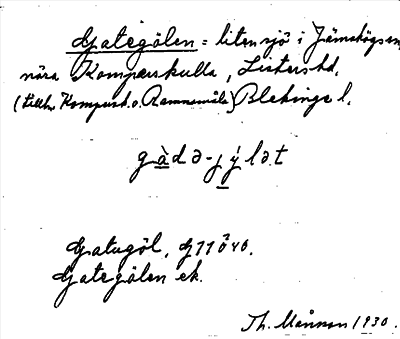 Gategölen = liten sjö i Jämshögs sn,
nära Komperskulla, Listers hd.
(tillh. Kompersk. o. Rammsmåla) Blekinge l.
gàdə-jýlət
Gatugöl,
Gategölen ek.
Th. Månsson 1930.